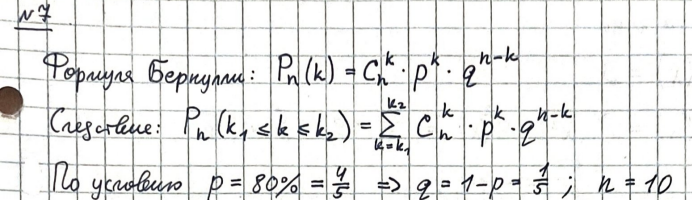 №7
Формула Бернулли: Pₙ(k) = Cₙᵏ · pᵏ · qⁿ⁻ᵏ
Следствие: Pₙ(k₁ ≤ k ≤ k₂) = ∑_{k=k₁}^{k₂} Cₙᵏ · pᵏ · qⁿ⁻ᵏ
По условию p = 80% = 4/5 ⇒ q = 1 - p = 1/5 ; n = 10